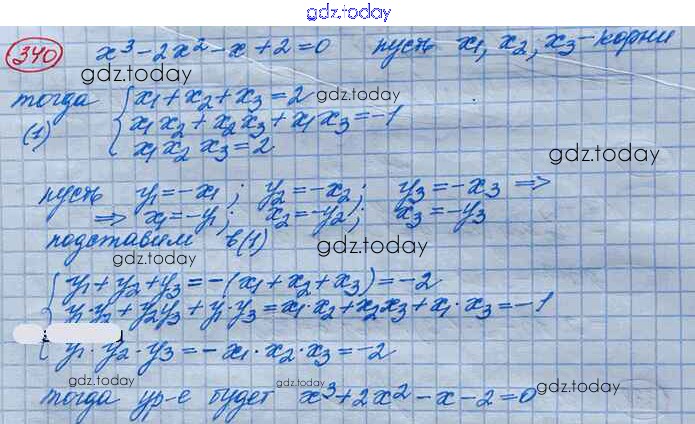 gdz.today
340 x³ - 2x² - x + 2 = 0 пусть x₁, x₂, x₃ - корни
gdz.today
тогда x₁ + x₂ + x₃ = 2 gdz.today
(1) x₁x₂ + x₂x₃ + x₁x₃ = -1
x₁x₂x₃ = 2 gdz.today
пусть y₁ = -x₁; y₂ = -x₂; y₃ = -x₃ ⇒
⇒ x₁ = -y₁; x₂ = -y₂; x₃ = -y₃
подставим в (1) gdz.today
y₁ + y₂ + y₃ = -(x₁ + x₂ + x₃) = -2
y₁·y₂ + y₂y₃ + y₁·y₃ = x₁·x₂ + x₂x₃ + x₁·x₃ = -1
y₁·y₂·y₃ = -x₁·x₂·x₃ = -2
gdz.today gdz.today gdz.today
тогда ур-е будет x³ + 2x² - x - 2 = 0